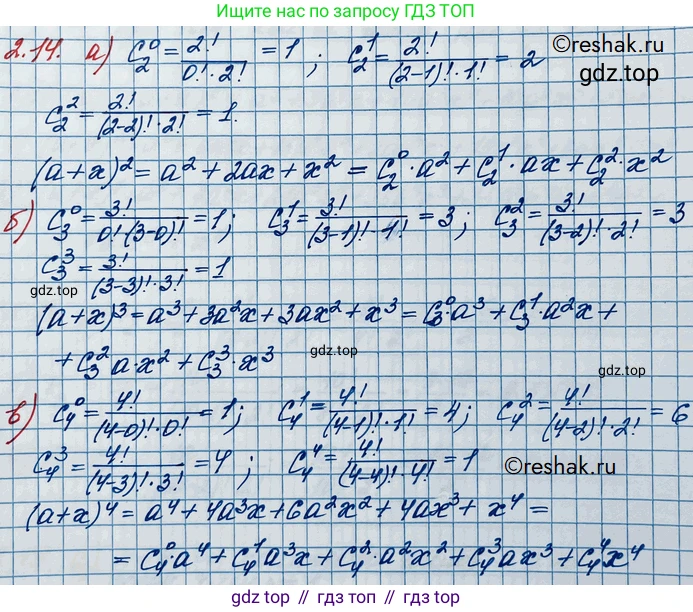 Ищите нас по запросу ГДЗ ТОП
2.14. а) C₂⁰ = 2!/(0!·2!) = 1; C₂¹ = 2!/((2-1)!·1!) = 2
©reshak.ru
gdz.top
C₂² = 2!/((2-2)!·2!) = 1.
(a+x)² = a² + 2ax + x² = C₂⁰·a² + C₂¹·ax + C₂²·x²
б) C₃⁰ = 3!/(0!·(3-0)!) = 1; C₃¹ = 3!/((3-1)!·1!) = 3; C₃² = 3!/((3-2)!·2!) = 3
C₃³ = 3!/((3-3)!·3!) = 1
gdz.top
gdz.top
(a+x)³ = a³ + 3a²x + 3ax² + x³ = C₃⁰·a³ + C₃¹·a²x +
+ C₃²a·x² + C₃³·x³
gdz.top
gdz.top
в) C₄⁰ = 4!/((4-0)!·0!) = 1; C₄¹ = 4!/((4-1)!·1!) = 4; C₄² = 4!/((4-2)!·2!) = 6
C₄³ = 4!/((4-3)!·3!) = 4; C₄⁴ = 4!/((4-4)!·4!) = 1
©reshak.ru
gdz.top
(a+x)⁴ = a⁴ + 4a³x + 6a²x² + 4ax³ + x⁴ =
= C₄⁰a⁴ + C₄¹a³x + C₄²·a²x² + C₄³ax³ + C₄⁴x⁴
gdz.top // гдз топ // gdz.top